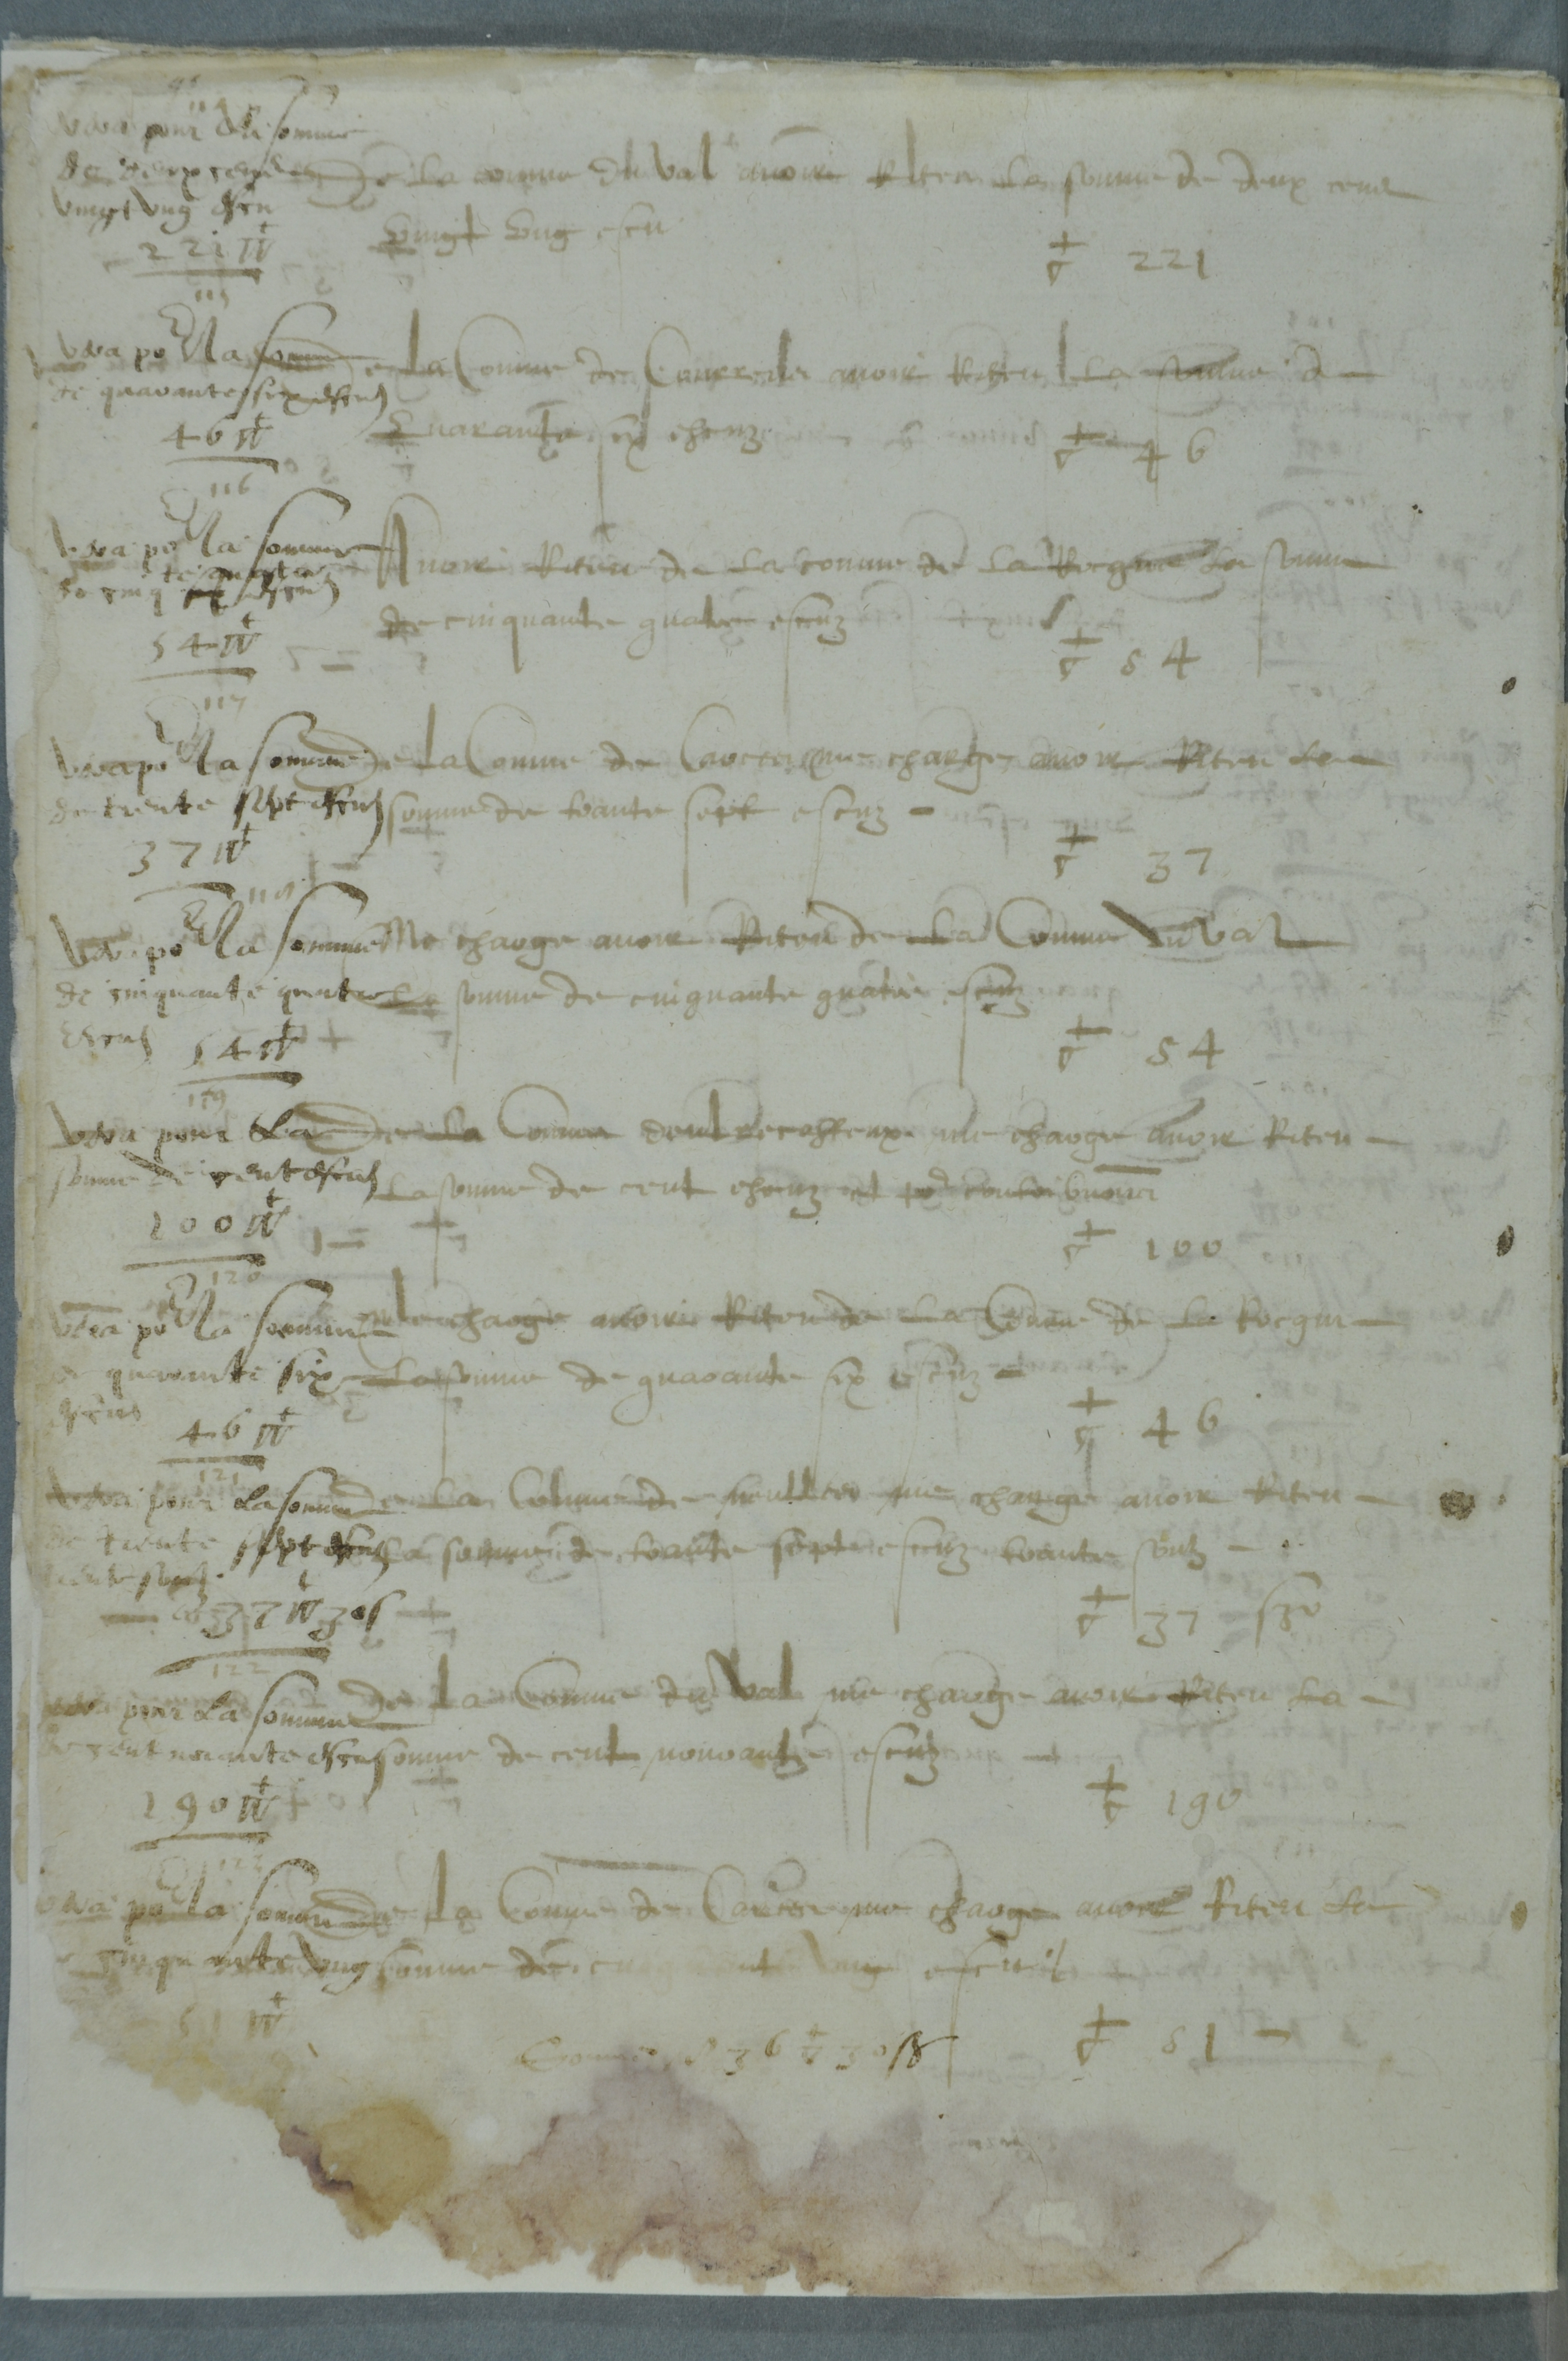 114
Vera pour la somme
de deux cens
vingt ung escu
221
De la comune du Val avoir Riten La somme de deux cens
vingt ung escu
221
115
Vera po la somme
de quarante six escus
46
De La Comune de avoir Riten La somme de
Quarante six escuz
46
116
Vera po la somme
54
Avoir Riten de La comune de La Rocque La somme
de cinquante quatre escuz
54
117
Vera po la somme
de trente sept escus
37
De La Comune de me charge avoir Riten La
somme de trante sept escuz
37
118
Vera po la somme
de cinquante quatre
escus 54
Me charge avoir Riten de La Comune du Val
La somme de cinquante quatre escuz
54
119
Vera pour La
somme de cent escus
100
De La Comune me charge avoir Riten
La somme de cent escuz
100
120
Vera po la somme
de quarante six
escus
46
Me charge avoir Riten de La Comune de La Rocque
La somme de quarante six escuz
46
121
Vera pour La somme
de trente sept escus
trente soulz
37 30 s
De La Comune de me charge avoir Riten
La somme de trante sept escuz trante soulz
37 s 30
122
Vera pour La somme
de cent nonante escus
190
De La Comune du Val me charge avoir Riten La
somme de cent nonante escuz
190
123
Vera po la somme
cinquante ung
51
De La Comune de me charge avoir Riten La
somme de cinquante ung escu
51
Somme 836 30 s